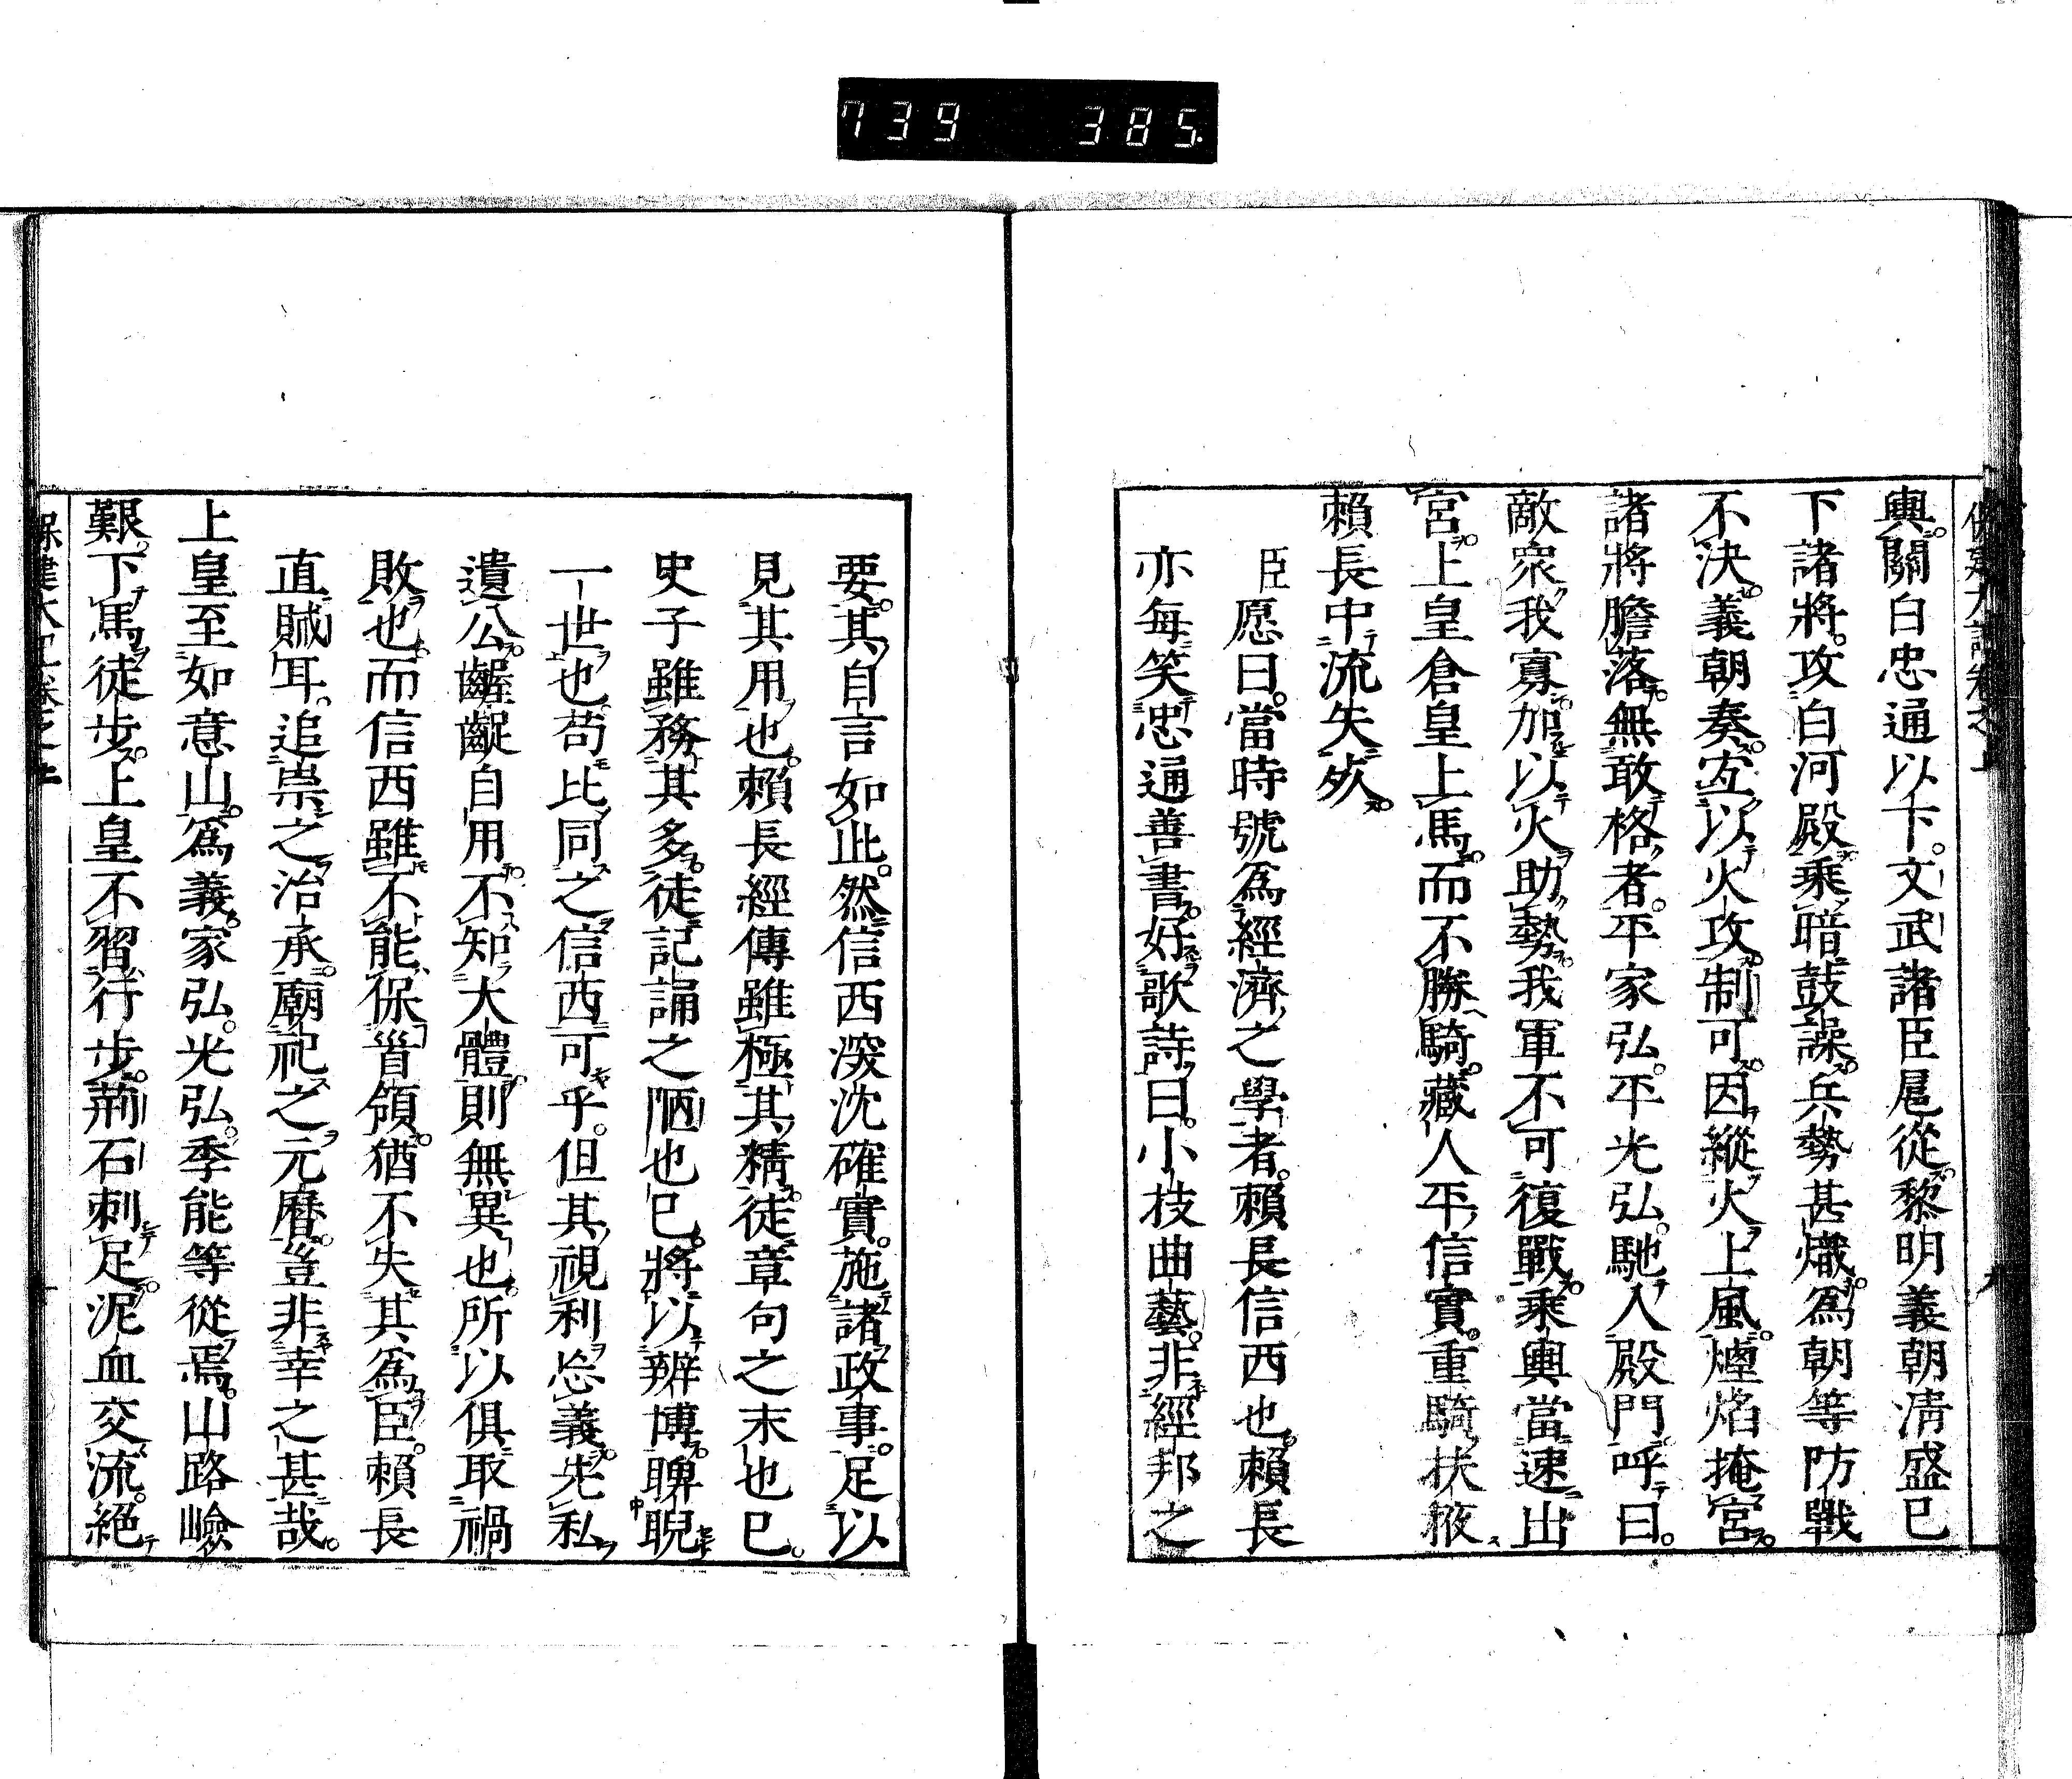 739 385
保建大記卷之上 九
輿。關白忠通以下。文武諸臣扈從。黎明義朝清盛已
下諸將。攻白河殿。乘暗鼓譟。兵勢甚熾。爲朝等防戰
不決。義朝奏。宐以火攻。制可。因縱火上風。煙焰掩宮。
諸將膽落。無敢格者。平家弘。平光弘。馳入殿門呼曰。
敵衆我寡。加以火助勢。我軍不可復戰。乘輿當速出
宮。上皇倉皇上馬。而不勝騎。藏人平信實。重騎扶掖
賴長中流矢死。
臣愿曰。當時號爲經濟之學者。賴長信西也。賴長
亦每笑忠通善書。好歌詩曰。小技曲藝。非經邦之
要。其自言如此。然信西深沈確實。施諸政事。足以
見其用也。賴長經傳雖極其精。徒章句之末也已。
史子雖務其多。徒記誦之陋也已。將以辨博睥睨
一世也。苟比同之信西可乎。但其視利忘義。先私
遺公。齷齪自用。不知大體。則無異也。所以俱取禍
敗也。而信西雖不能保首領。猶不失其爲臣。賴長
直賊耳。追祟之治承。廟祀之元曆。豈非幸之甚哉。
上皇至如意山。爲義。家弘。光弘。季能等從焉。山路嶮
艱。下馬徒步。上皇不習行步。荊石刺足。泥血交流。絕
保建大記卷之上 十